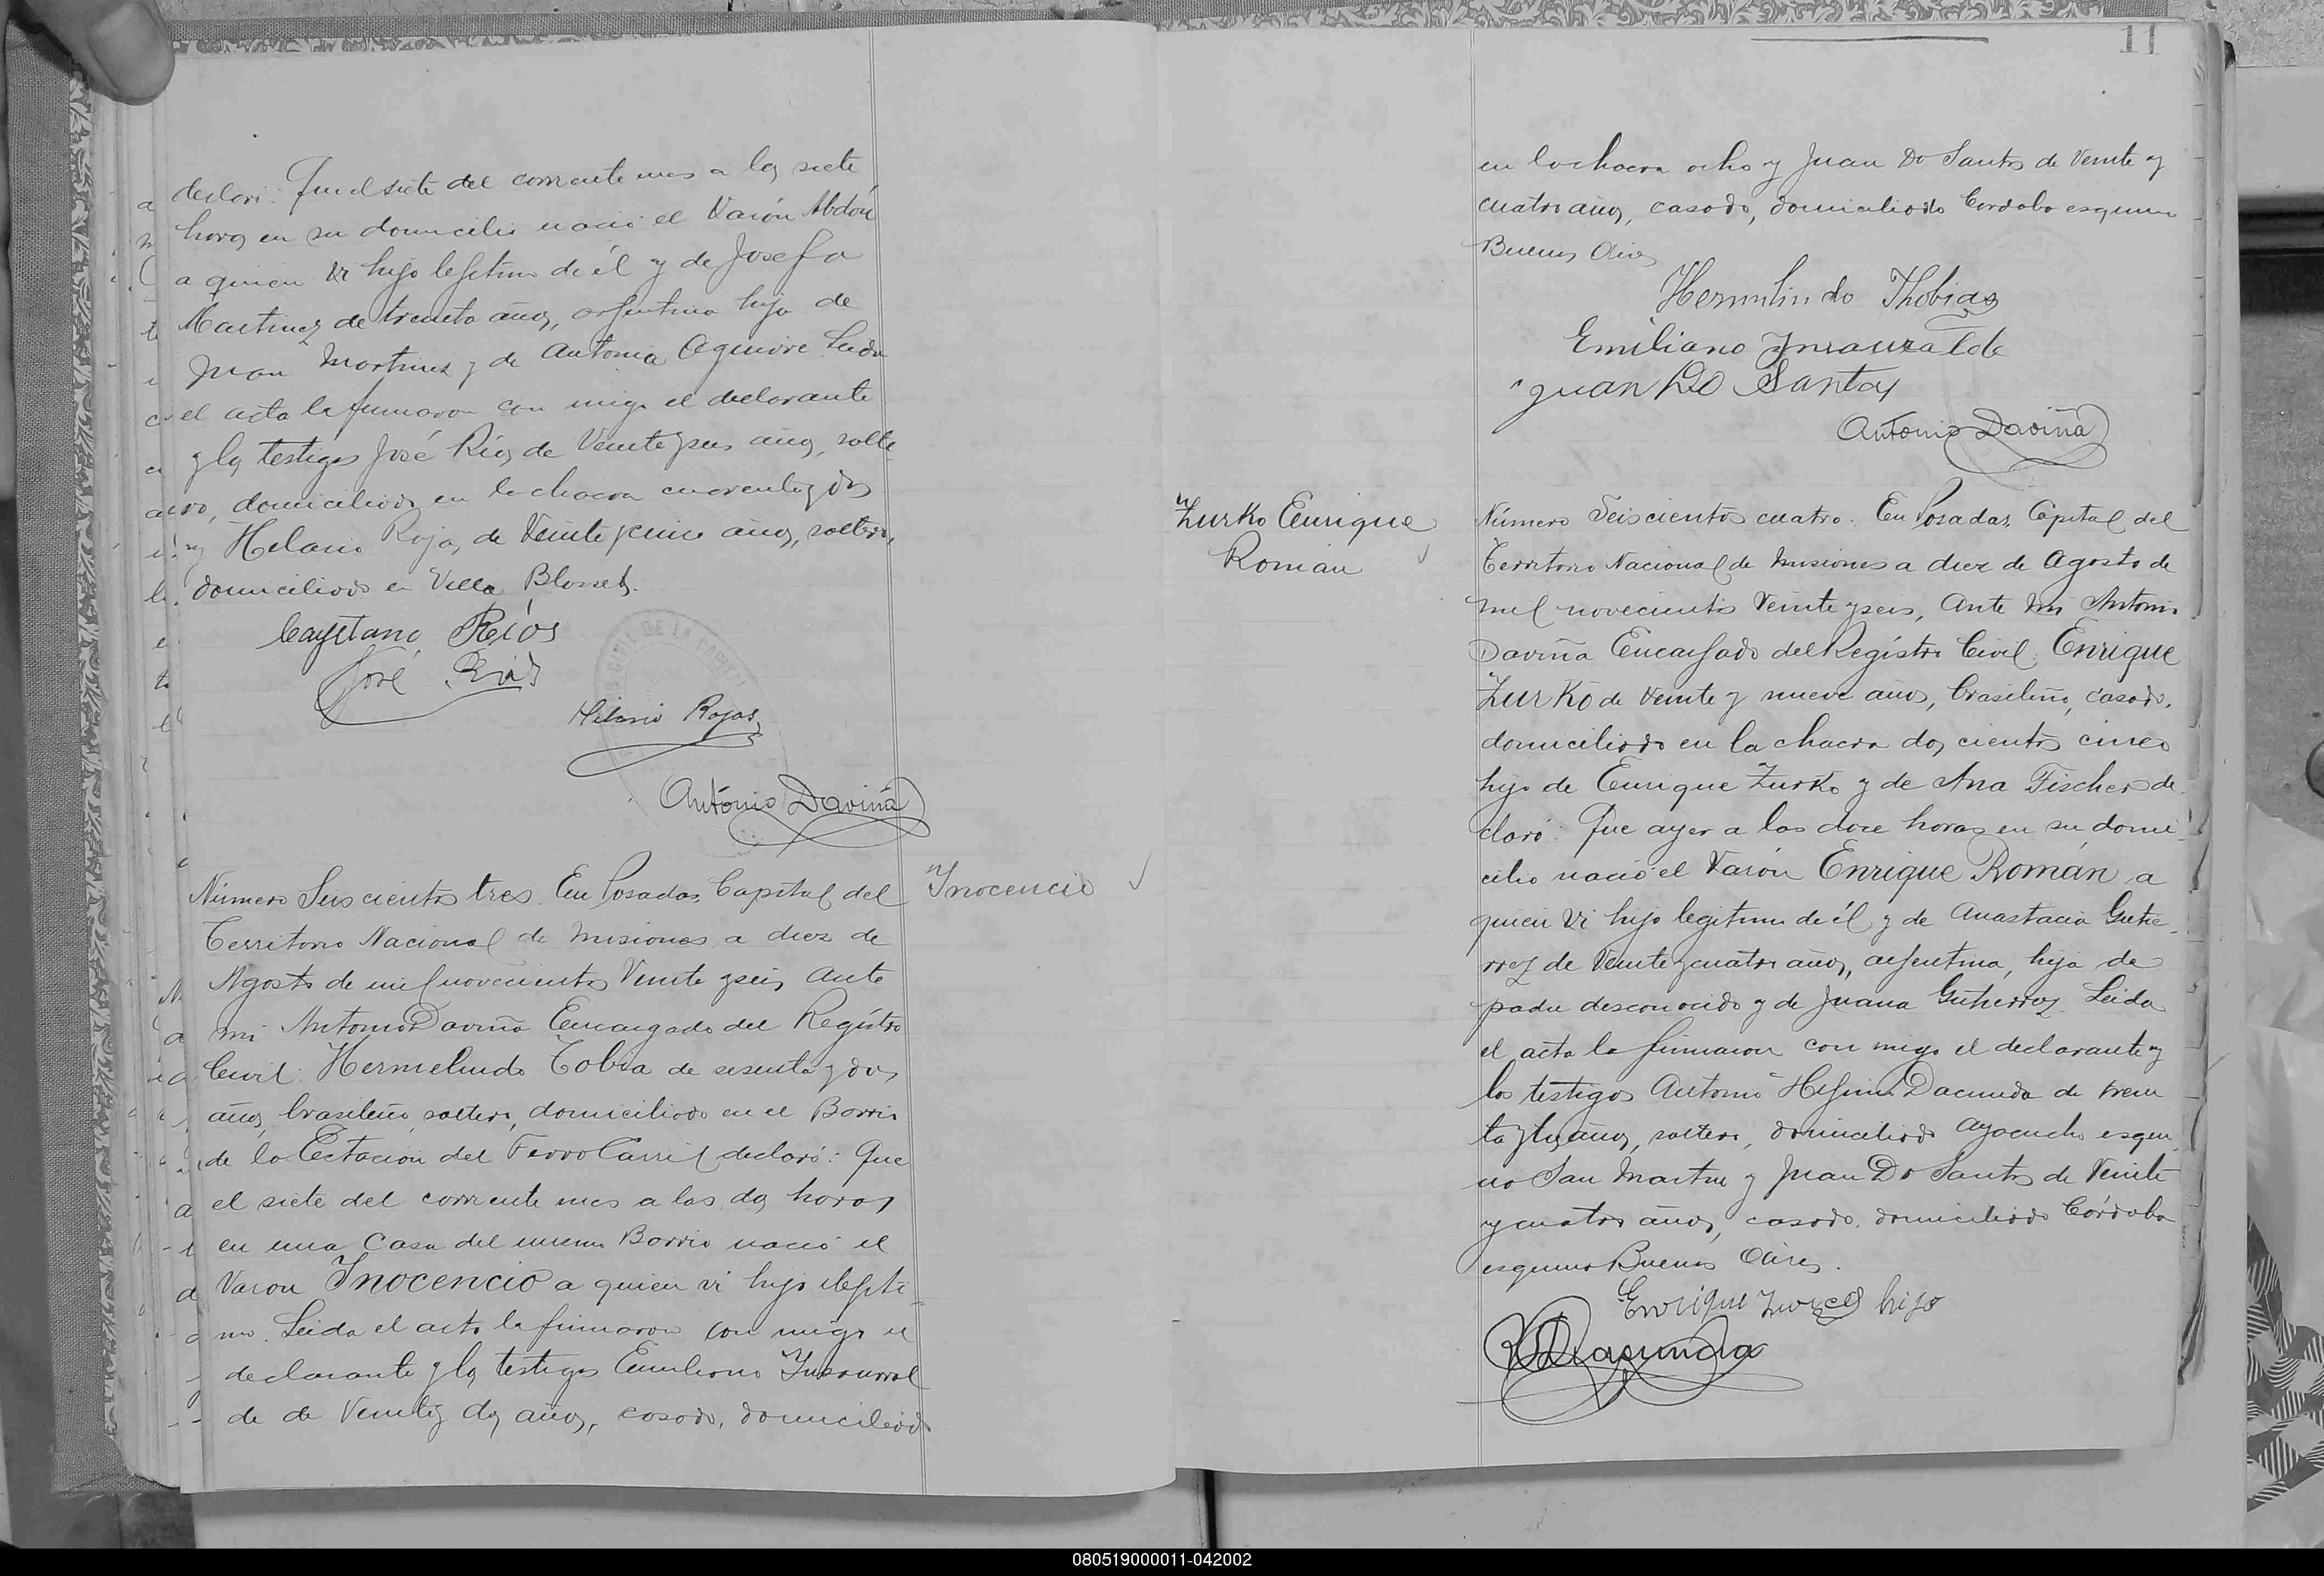 declaró: Que el siete del corriente mes a las siete
horas en su domicilio nació el Varón Abdón
a quien vi hijo lejitimo de él y de Josefa
Martinez de treinta años, arjentina hija de
Juan Martinez y de Antonia Aguirre. Leida
el acta la firmaron con migo el declarante
y los testigos José Ríos de Veinte y seis años, solte
ro, domiciliado en la chacra cuarenta y dos
y Hilario Rojas de Veinte y cinco años, soltero,
domiciliado en Villa Blosset.
Cayetano Ríos
José Rios
Hilario Rojas
Antonio Daviña
Número Seiscientos tres. En Posadas, Capital del
Inocencio
Territorio Nacional de Misiones a diez de
Agosto de mil novecientos Veinte y seis, Ante
mi Antonio Daviña Encargado del Registro
Civil: Hermelindo Tobia de sesenta y dos
años, brasileño, soltero, domiciliado en el Barrio
de la Estacion del Ferro Carril declaró: Que
el siete del corriente mes a las dos horas
en una Casa del mismo Barrio nació el
Varon Inocencio a quien vi hijo ilejiti-
mo. Leida el acta la firmaron con migo el
declarante y los testigos Emiliano Insaurral
de de Veinte y dos años, casado, domiciliado
11
en la chacra ocho y Juan Do Santos de Veinte y
cuatro años, casado, domiciliado Cordoba esquina
Buenos Aires
Hermilindo Thobias
Emiliano Insauralde
Juan Do Santos
Antonio Daviña
Zurko Enrique
Román
Número Seiscientos cuatro. En Posadas, Capital del
Territorio Nacional de Misiones a diez de Agosto de
mil novecientos Veinte y seis, Ante mi Antonio
Daviña Encargado del Registro Civil: Enrique
Zurko de Veinte y nueve años, brasileño, casado,
domiciliado en la chacra dos cientos cinco
hijo de Enrique Zurko y de Ana Fischer de
claró: Que ayer a las doce horas en su domi
cilio nació el Varón Enrique Román a
quien vi hijo legitimo de él y de Anastacia Gutie-
rrez de Veinte y cuatro años, arjentina, hija de
padre desconocido y de Juana Gutierrez. Leida
el acta la firmaron con migo el declarante y
los testigos Antonio Hijinio Dacunda de trein
ta y tres años, soltero, domiciliado Ayacucho esqui
na San Martin y Juan Do Santos de Veinte
y cuatro años, casado, domiciliado Córdoba
esquina Buenos Aires.
Enrique hijo
Dacunda
080519000011-042002